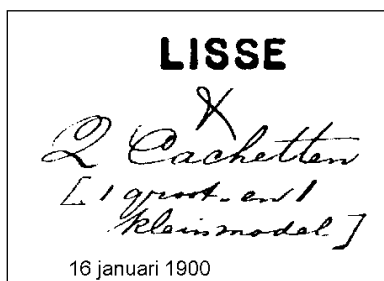 LISSE
2 Cachetten
[1 groot- en 1
kleinmodel]
16 januari 1900